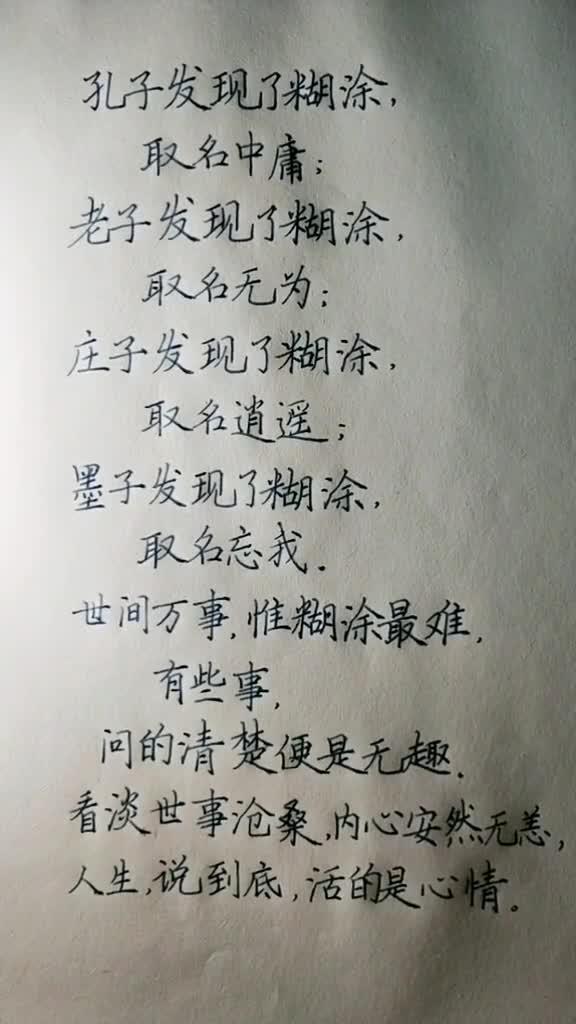 孔子发现了糊涂,
取名中庸;
老子发现了糊涂,
取名无为;
庄子发现了糊涂,
取名逍遥;
墨子发现了糊涂,
取名忘我.
世间万事,惟糊涂最难,
有些事,
问的清楚便是无趣.
看淡世事沧桑,内心安然无恙,
人生,说到底,活的是心情。